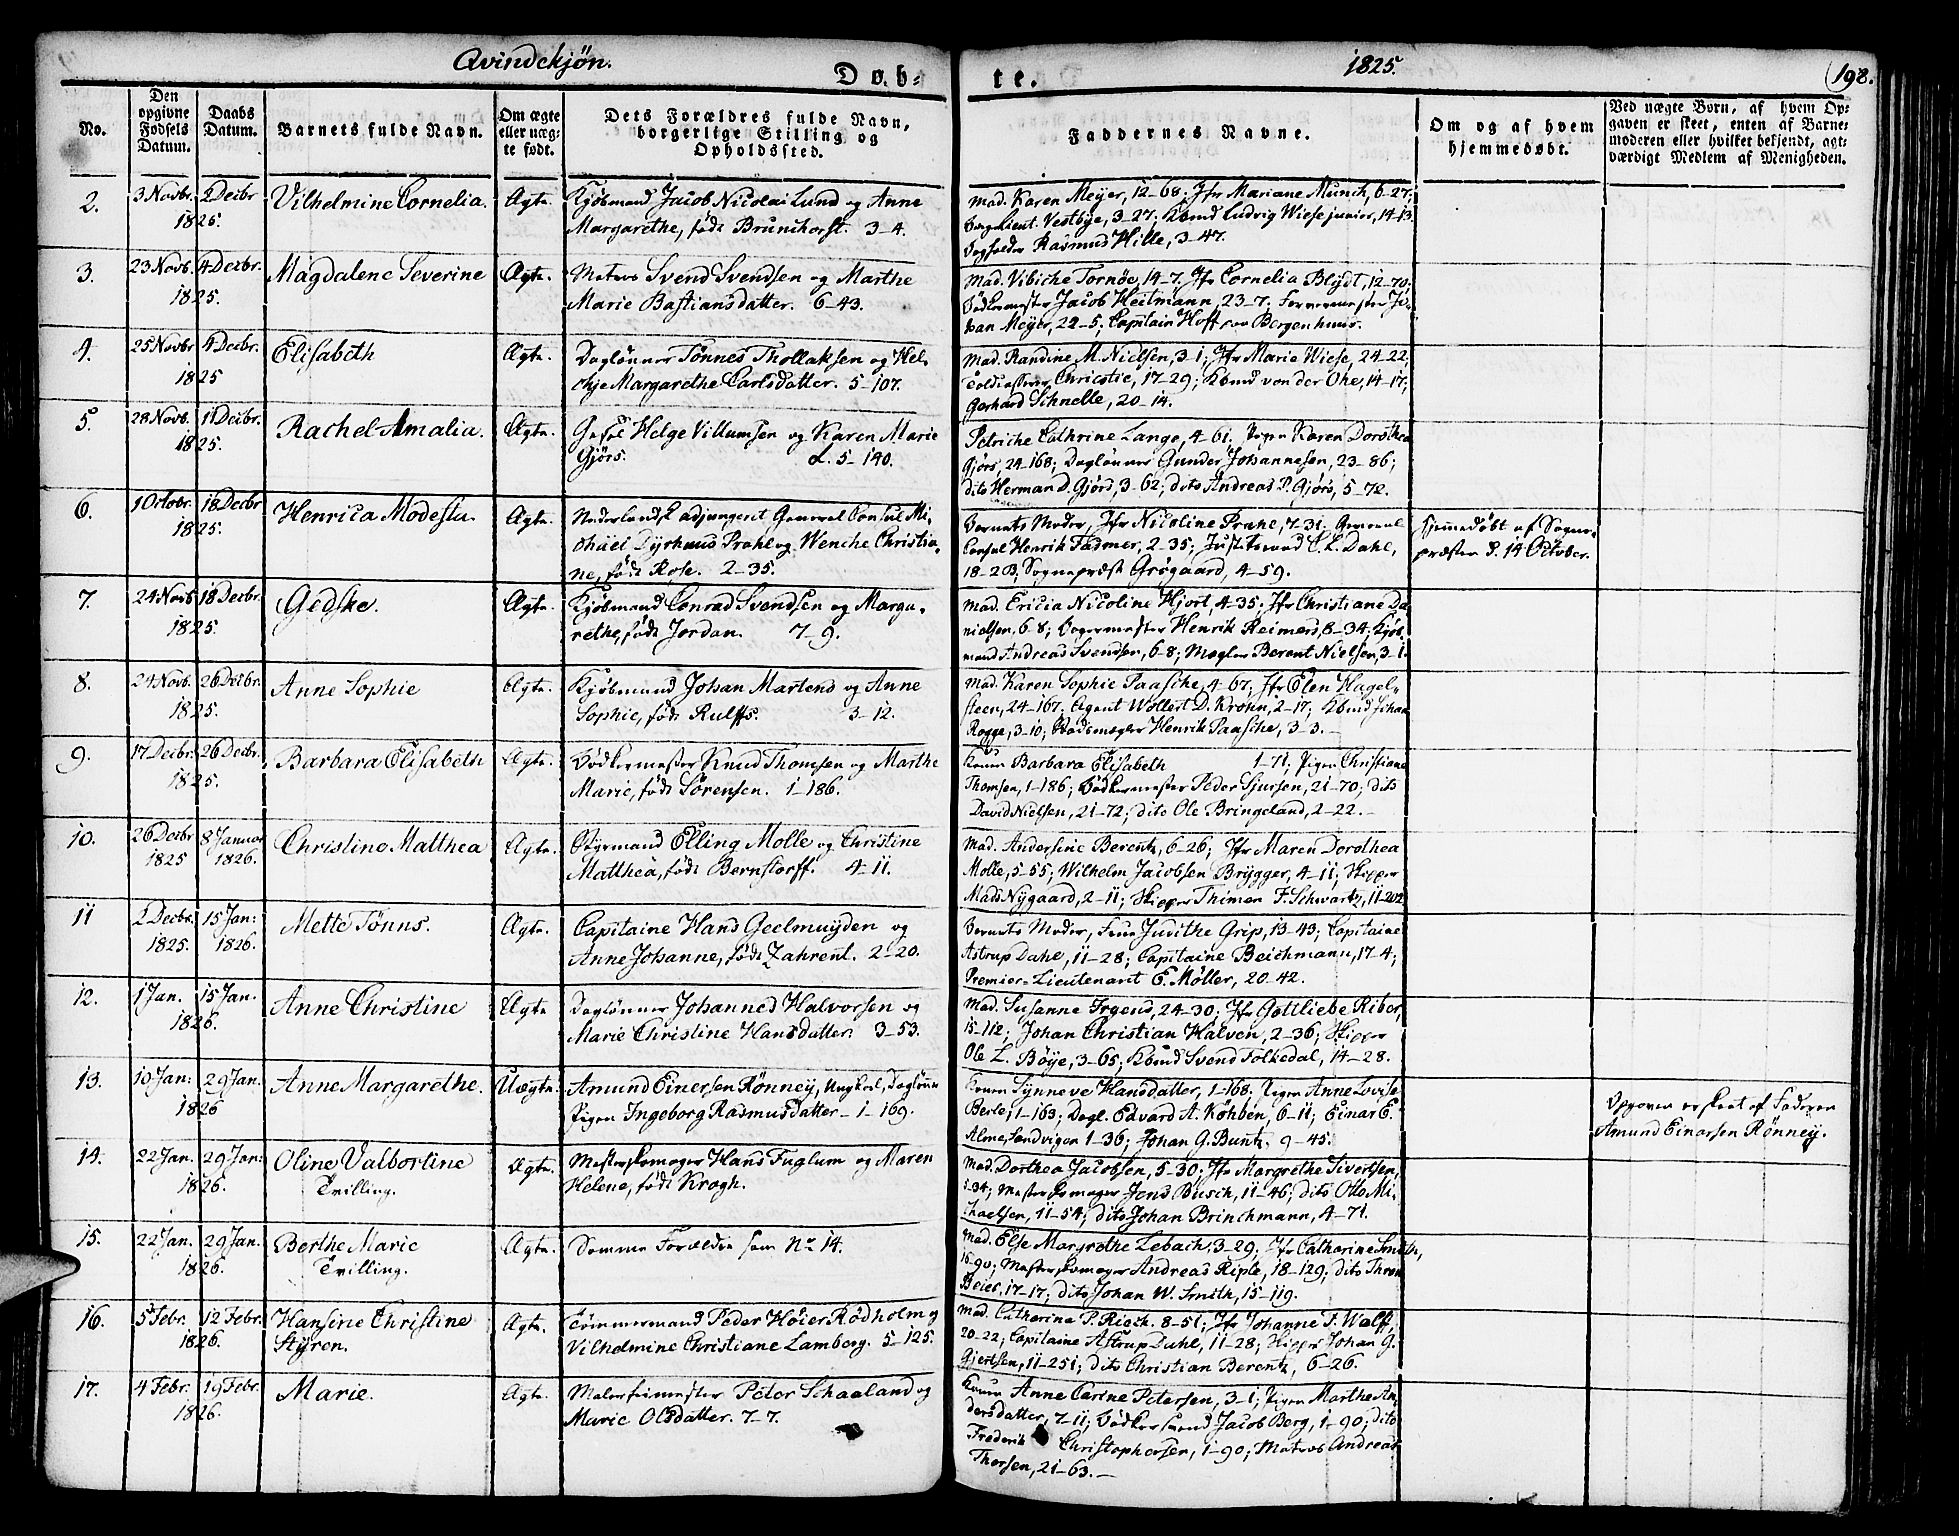 Qvindekjøn.
Døb-
te.
1825.
198.
No.
Den opgivne Fødsels Datum.
Daabs Datum.
Barnets fulde Navn.
Om ægte eller uægte født.
Dets Forældres fulde Navn, borgerlige Stilling og Opholdssted.
Faddernes Navne.
Om og af hvem hjemmedøbt.
Ved uægte Børn, af hvem Opgaven er skeet, enten af Barnemoderen eller hvilket bekjendt, agtværdigt Medlem af Menigheden.
2. 3 Novbr. 2 Decbr 1825. Vilhelmine Cornelia. Ægte.
Kjøbmand Jacob Nicolai Lund og Anne
Margarethe, født Brunchorst. 3-4.
Mad. Karen Meyer, 12-68; Jfr Mariane Munch, 6-27;
Lieut. Vestbye, 3-27. Kbmd Ludvig Wiese junior, 14-13.
Rasmus Hille, 3-47.
3. 23 Novb. 4 Decbr. 1825. Magdalene Severine Ægte.
Matros Svend Svendsen og Marthe
Marie Bastiansdatter. 6-43.
Mad. Vibiche Tornøe, 14-7. Jfr Cornelia Blÿdt, 12-70;
Bødkermester Jacob Heitmann, 23-7. Farvermester Jo-
han Meyer, 22-5; Capitain Hoff paa Bergenhuus.
4. 25 Novbr 4 Decbr. 1825 Elisabeth Ægte.
Daglønner Tønnes Thollaksen og Hel-
chje Margarethe Carlsdatter. 5-107.
Mad. Randine M. Nielsen, 3-1; Jfr Marie Wiese, 24-22;
Christie, 17-29; Kbmd von der Ohe, 14-17;
Gerhard Schnelle, 20-14.
5. 28 Novb. 11 Decbr. 1825. Rachel Amalia. Ægte.
Helge Villumsen og Karen Marie
Gjørs. L. 5-140.
Petriche Cathrine Lange, 4-61. Pigen Karen Dorothea
Gjørs, 24-168; Daglønner Gunder Johannesen, 23-86;
dito Herman D. Gjørs, 3-62; dito Andreas P. Gjørs, 5-72.
6. 1 Octobr. 18 Decbr 1825. Henrica Modesta. Ægte.
Nederlandsk adjungeret General Consul Mi-
chael Dyrhuus Prahl og Wenche Christia-
ne, født Rose. 2-35.
Barnets Moder, Jfr Nicoline Prahl, 7-31. General
Consul Henrik Fasmer, 2-35; Justitsraad C. L. Dahl,
18-2B, Sognepræst Grøgaard, 4-59.
Hjemmedøbt af Sogne-
præsten d. 14 October.
7. 24 Novb 18 Decbr. 1825. Gedske. Ægte.
Kjøbmand Conrad Svendsen og Marga-
rethe, født Jordan. 7-9.
Mad. Ericia Nicoline Hjort, 4-35; Jfr Christiane Da-
nielsen, 6-8; Bagermester Henrik Reimers, 8-34, Kjøb-
mand Andreas Svendsen, 6-8; Mægler Berent Nielsen, 3-1.
8. 24 Novb. 26 Decbr. 1825. Anne Sophie Ægte.
Kjøbmand Johan Martens og Anne
Sophie, født Rulffs. 3-12.
Mad. Karen Sophie Paasche, 4-67; Jfr Elen Hagel-
steen, 24-167. Agent Wollert D. Krohn, 2-17; Kbmd Johan
Rogge, 3-10; Stadsmægler Henrik Paasche, 3-3.
9. 17 Decbr. 26 Decbr. 1825. Barbara Elisabeth Ægte.
Bødkermester Knud Thomsen og Marthe
Marie, født Sørensen. 1-186.
Konen Barbara Elisabeth 1-71; Pigen Christiane
Thomsen, 1-186; Bødkermester Peder Sjursen, 21-70; dito
David Nielsen, 21-72; dito Ole Bringeland, 2-22.
10. 26 Decbr 1825 8 Januar 1826. Christine Matthea Ægte.
Styrmand Elling Molle og Christine
Matthea, født Bernstorff. 4-11.
Mad. Andersine Berentz, 6-26; Jfr Maren Dorothea
Molle, 5-55; Wilhelm Jacobsen Brygger, 4-11; Skipper
Mads Nygaard, 2-11; Skipper Thimen F. Schwartz, 11-202.
11 2 Decbr. 1825. 15 Jan: 1826. Mette Tønns. Ægte.
Capitaine Hans Geelmuyden og
Anne Johanne, født Zahrent. 2-20.
Barnets Moder, Frue Judithe Grip, 13-43; Capitaine
Astrup Dahl, 11-28; Capitaine Beichmann, 17-4;
Premier-Lieutenant E. Møller, 20-42.
12. 1 Jan. 15 Jan. 1826. Anne Christine Ægte
Daglønner Johannes Halvorsen og
Marie Christine Hansdatter. 3-53.
Mad. Susanne Irgens, 24-30, Jfr Gottliebe Riber,
15-112; Johan Christian Halven, 2-36; Skipper
Ole L. Bøye, 3-65; Kbmd Svend Folkedal, 14-28.
13. 10 Jan: 29 Jan. 1826 Anne Margarethe. Uægte.
Amund Einersen Rønney, Ungkarl, Dagløn
Pigen Ingeborg Rasmusdatter - 1-169.
Konen Synneve Hansdatter, 1-168. Pigen Anne Lovise
Berle, 1-163; Dagl. Edvard A. Köhben, 6-11; Einar E.
Alme, Sandvigen 1-36; Johan G. Buntz. 9-45.
Opgaven er skeet af Faderen
Amund Einarsen Rønney.
14. 22 Jan. 29 Jan: 1826. Oline Valbortine Tvilling. Ægte.
Mesterskomager Hans Fuglum og Maren
Helene, født Krogh.
Mad. Dorthea Jacobsen, 5-30; Jfr Margrethe Sivertsen,
5-34; Mesterskomager Jens Busch, 11-46; dito Otto Mi-
chaelsen, 11-54; dito Johan Brinchmann, 4-71.
15. 22 Jan. 29 Jan. 1826. Berthe Marie Tvilling. Ægte.
Samme Forældre som No 14.
Mad. Else Margrethe Lebach, 3-29; Jfr Catharine Smith,
15-90; Mesterskomager Andreas Riple, 18-129; dito Thron
Beier, 17-17; dito Johan W. Smith, 15-119.
16. 5 Febr. 12 Febr. 1826. Hansine Christine Styren. Ægte.
Tømmermand Peder Høier Rødholm og
Vilhelmine Christiane Lamberg. 5-125.
Mad. Catharina P. Rieck. 8-51; Jfr Johanne T. Wolff,
20-22; Capitaine Astrup Dahl, 11-28; Skipper Johan G.
Gjertsen, 11-251; dito Christian Berentz, 6-26.
17. 4 Febr. 19 Febr. 1826. Marie. Ægte.
Peter Schaaland og
Marie Olsdatter. 7-7.
Konen Anne Carine Petersen, 3-1; Pigen Marthe An-
dersdatter, 7-11; Bødkersvend Jacob Berg, 1-90; dito
Frederik Christophersen, 1-90; Matros Andreas
Thorsen, 21-63.